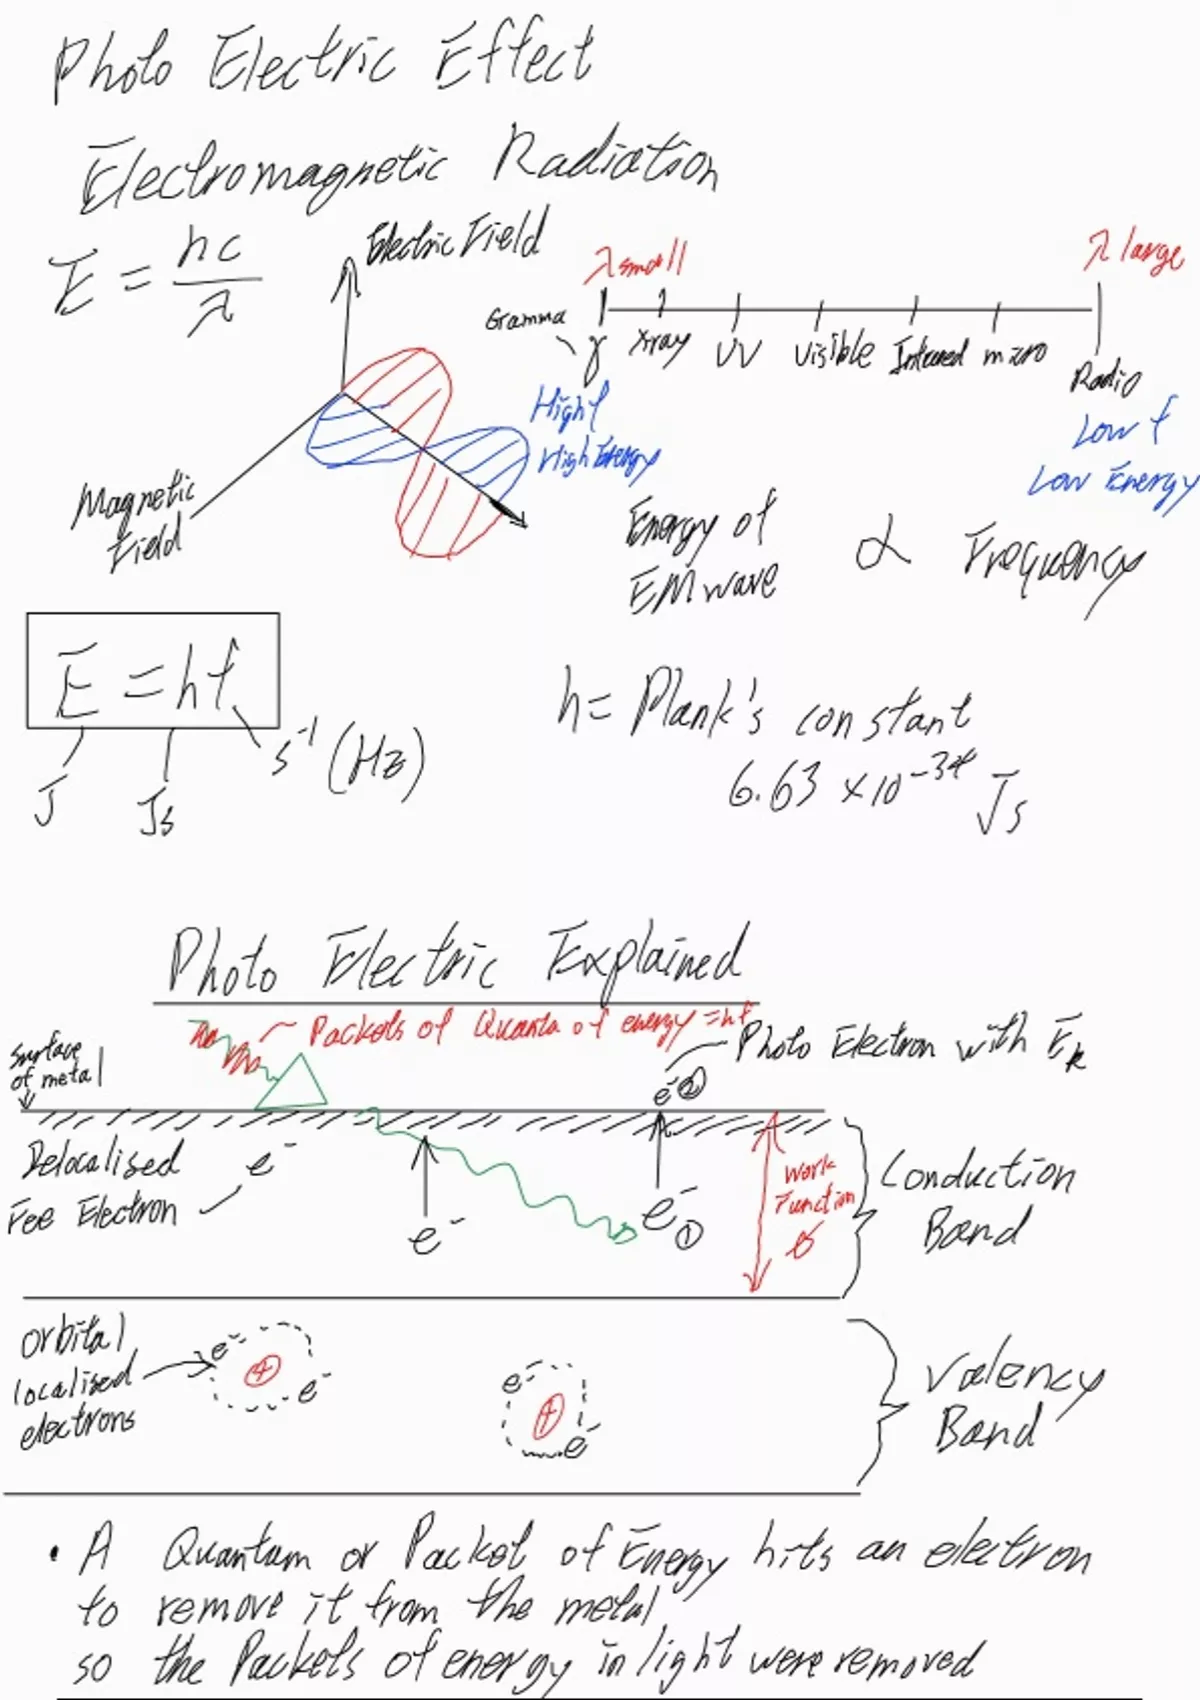 Photo Electric Effect
Electromagnetic Radiation
E = hc/λ
Electric Field
Magnetic Field
λ small
λ large
Gamma
γ xray UV Visible Infrared micro
Radio
High f
High Energy
Low f
Low Energy
Energy of EM wave ∝ Frequency
E = hf
J
Js
s⁻¹ (Hz)
h = Plank's constant
6.63 × 10⁻³⁴ Js
Photo Electric Explained
Packets of Quanta of energy = hf
Photo Electron with Eₖ
Surface of metal
e⁻ ②
Delocalised e⁻
Fee Electron
e⁻
e⁻ ①
Work Function
ø
Conduction Band
orbital localised electrons
e⁻ + e⁻
e⁻ + e⁻
Valency Band
• A Quantum or Packet of Energy hits an electron
to remove it from the metal
so the Packets of energy in light were removed